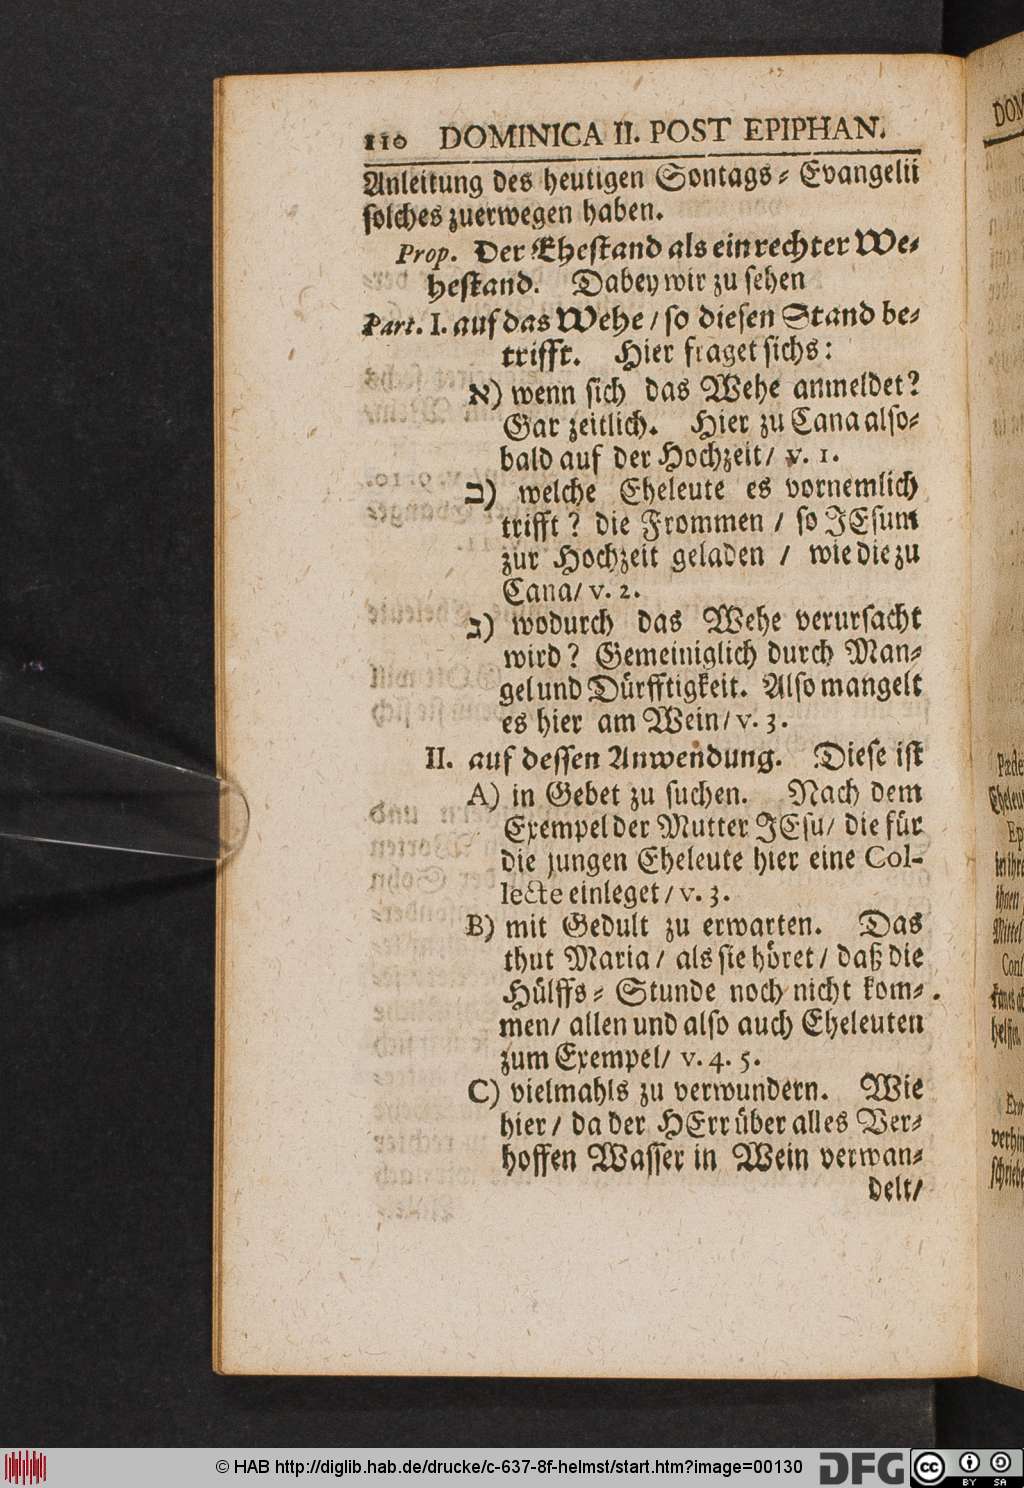 110 DOMINICA II. POST EPIPHAN.
Anleitung des heutigen Sontags⸗Evangelii
solches zuerwegen haben.
Prop. Der Ehestand als ein rechter We⸗
hestand. Dabey wir zu sehen
Part. I. auf das Wehe / so diesen Stand be⸗
trifft. Hier fraget sichs:
א) wenn sich das Wehe anmeldet?
Gar zeitlich. Hier zu Cana also⸗
bald auf der Hochzeit / v. 1.
ב) welche Eheleute es vornemlich
trifft? die Frommen / so JEsum
zur Hochzeit geladen / wie die zu
Cana / v. 2.
ג) wodurch das Wehe verursacht
wird? Gemeiniglich durch Man⸗
gel und Dürfftigkeit. Also mangelt
es hier am Wein / v. 3.
II. auf dessen Anwendung. Diese ist
A) in Gebet zu suchen. Nach dem
Exempel der Mutter JEsu / die für
die jungen Eheleute hier eine Col-
lecte einleget / v. 3.
B) mit Gedult zu erwarten. Das
thut Maria / als sie höret / daß die
Hülffs⸗Stunde noch nicht kom⸗
men / allen und also auch Eheleuten
zum Exempel / v. 4. 5.
C) vielmahls zu verwundern. Wie
hier / da der HErr über alles Ver⸗
hoffen Wasser in Wein verwan⸗
delt /
© HAB http://diglib.hab.de/drucke/c-637-8f-helmst/start.htm?image=00130
DFG
cc BY SA